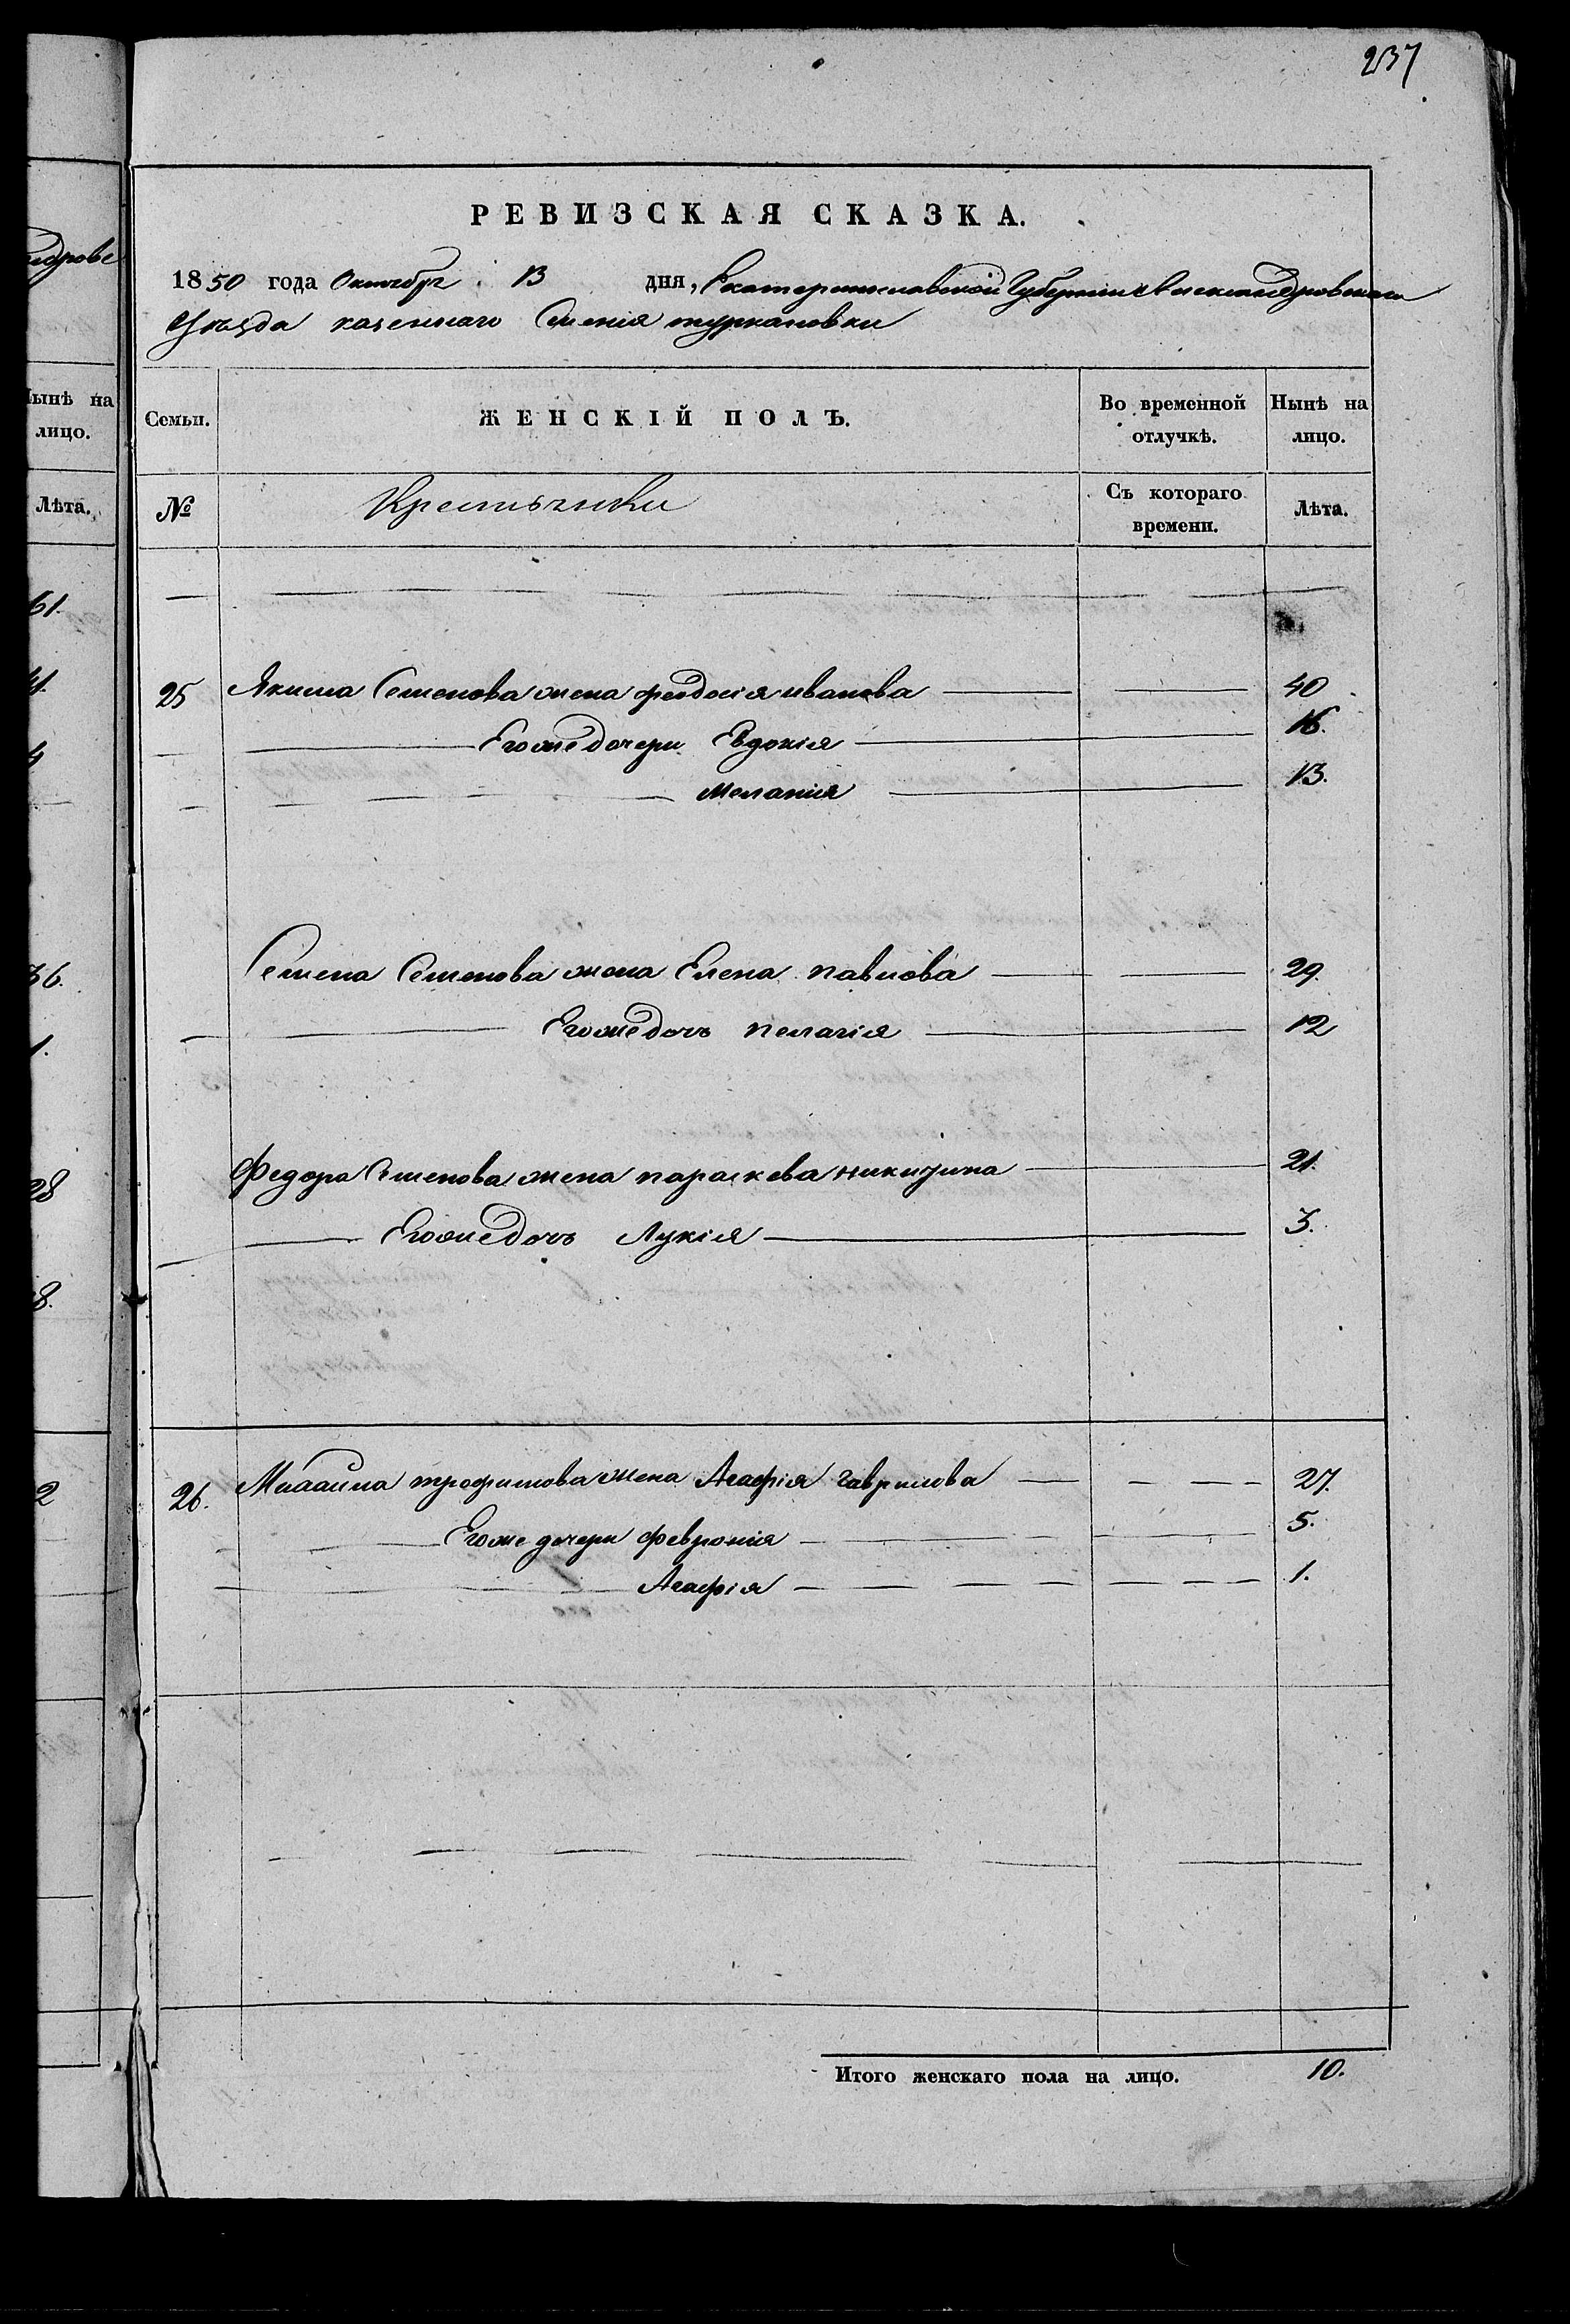 237
РЕВИЗСКАЯ СКАЗКА.
1850 года Октября 13 дня, Екатеринославской Губернии Александровскаго
Уѣзда казеннаго Имѣнія туркановки
Семьи. ЖЕНСКІЙ ПОЛЪ. Во временной отлучкѣ. Нынѣ на лицо.
№ Крестьянки Съ котораго времени. Лѣта.
25 Якима Семенова жена феодосія иванова 40
Его же дочери Евдокія 16.
Меланія 13.
Семена Семенова жена Елена павлова 29.
Его же дочь пелагія 12
Федора Семенова жена параскева никитина 21.
Его же дочь Лукія 3.
26. Михаила трофимова жена Агафія гаврилова 27.
Его же дочери феврония 5.
Агафія 1.
Итого женскаго пола на лицо. 10.
ынѣ на
лицо.
Лѣта.
61.
41.
4
36.
1.
28
8.
2